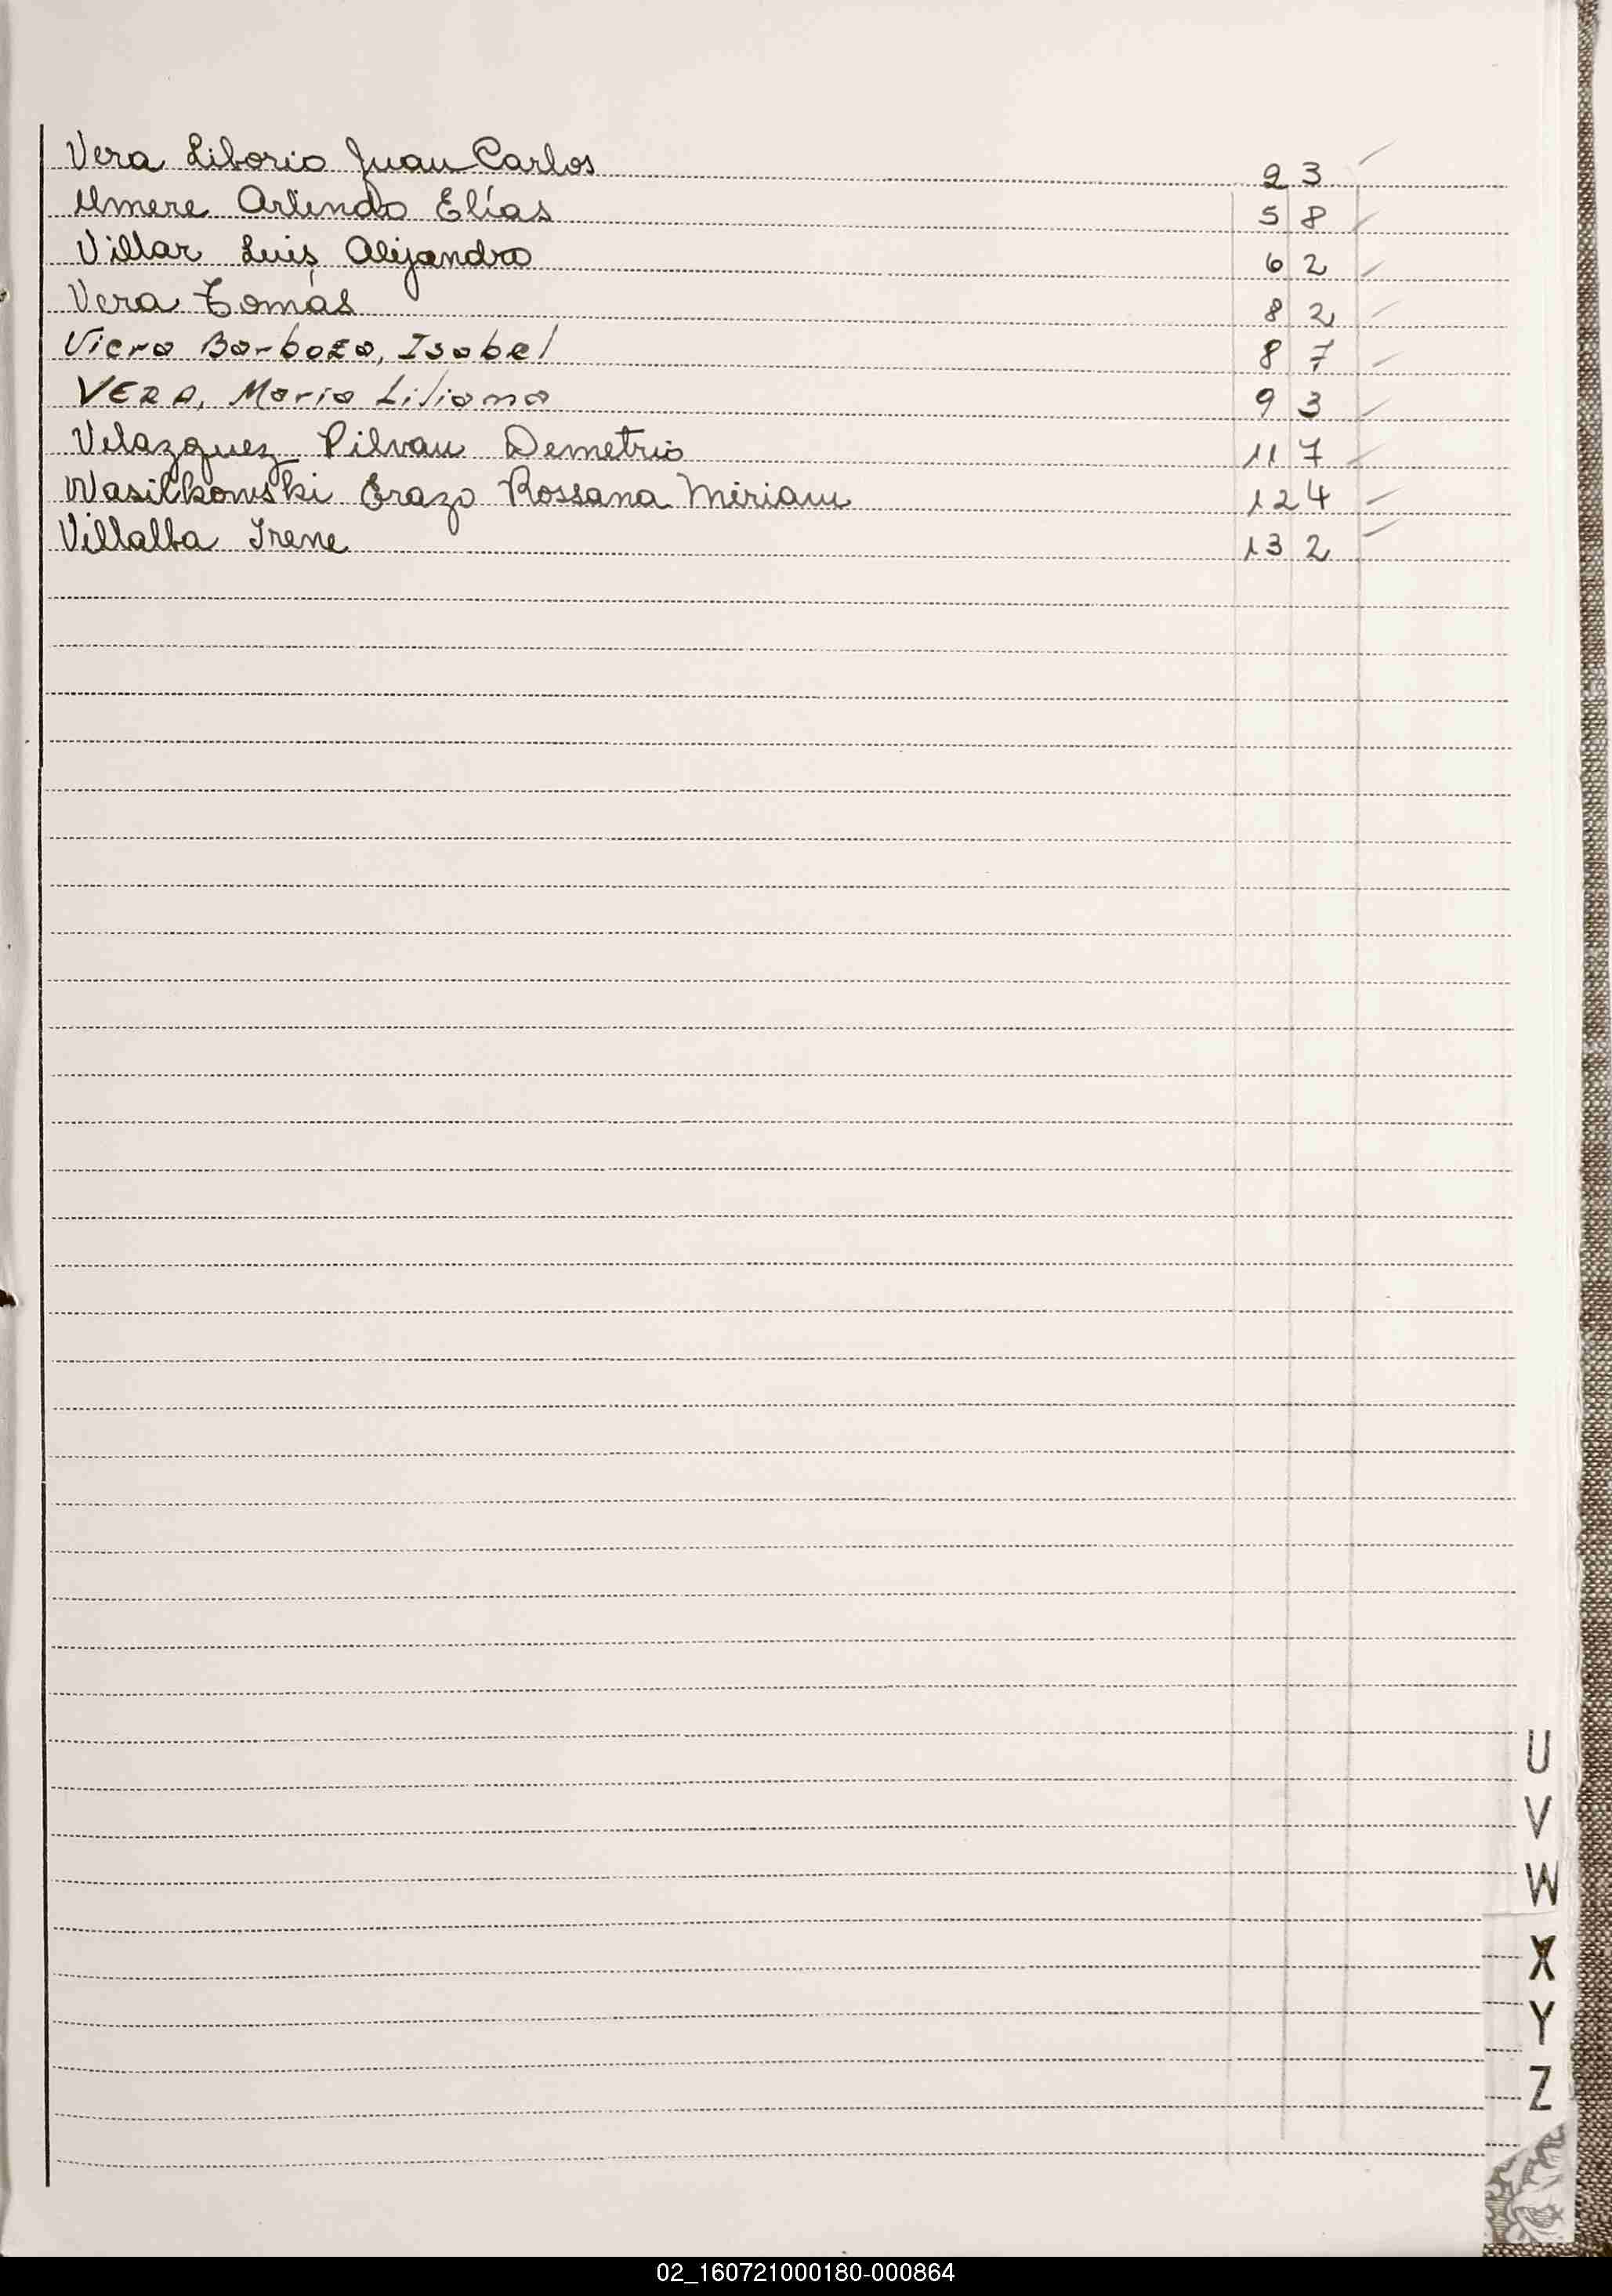 Vera Liborio Juan Carlos 23
Umere Arlindo Elías 58
Villar Luis Alejandro 62
Vera Tomás 82
Viera Barboza, Isabel 87
VERA, Maria Liliana 93
Velazquez Pilvau Demetrio 117
Wasilkowski Erazo Rossana Miriam 124
Villalba Irene 132
U
V
W
X
Y
Z
02_160721000180-000864